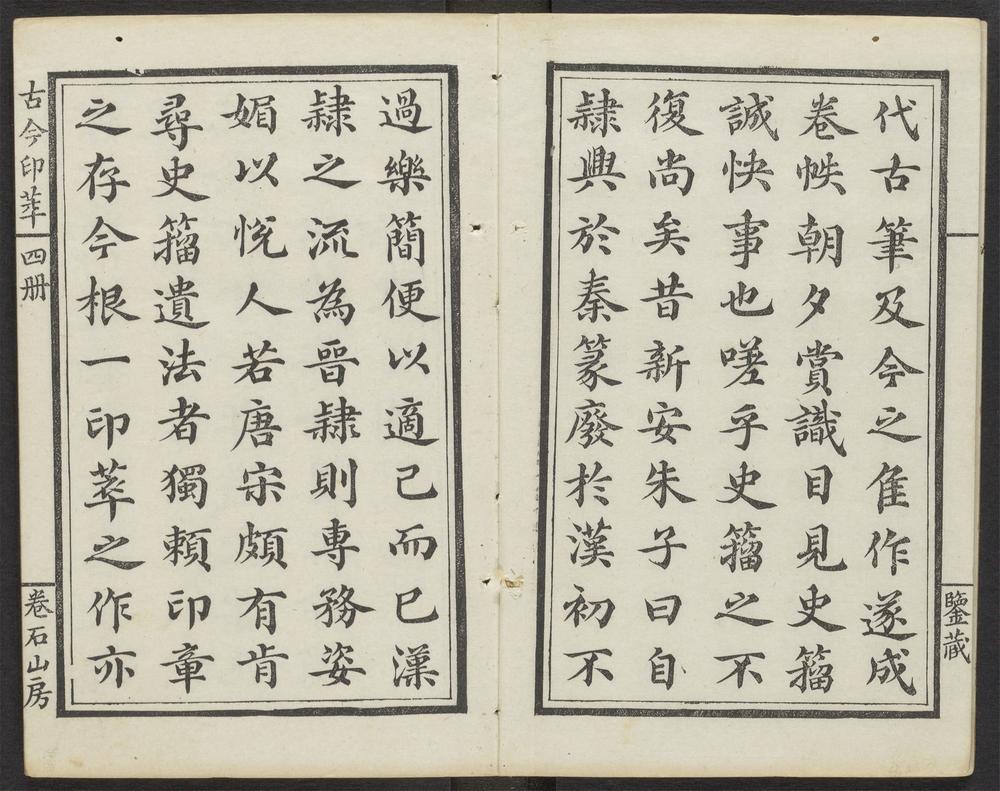 代古筆及今之隹作遂成
卷帙朝夕賞識目見史籀
誠快事也嗟乎史籀之不
復尚矣昔新安朱子曰自
隸興於秦篆廢於漢初不
過樂簡便以適己而已漢
隸之流為晉隸則專務姿
媚以悅人若唐宋頗有肯
尋史籀遺法者獨賴印章
之存今根一印萃之作亦
鑒藏
古今印萃
四册
卷石山房